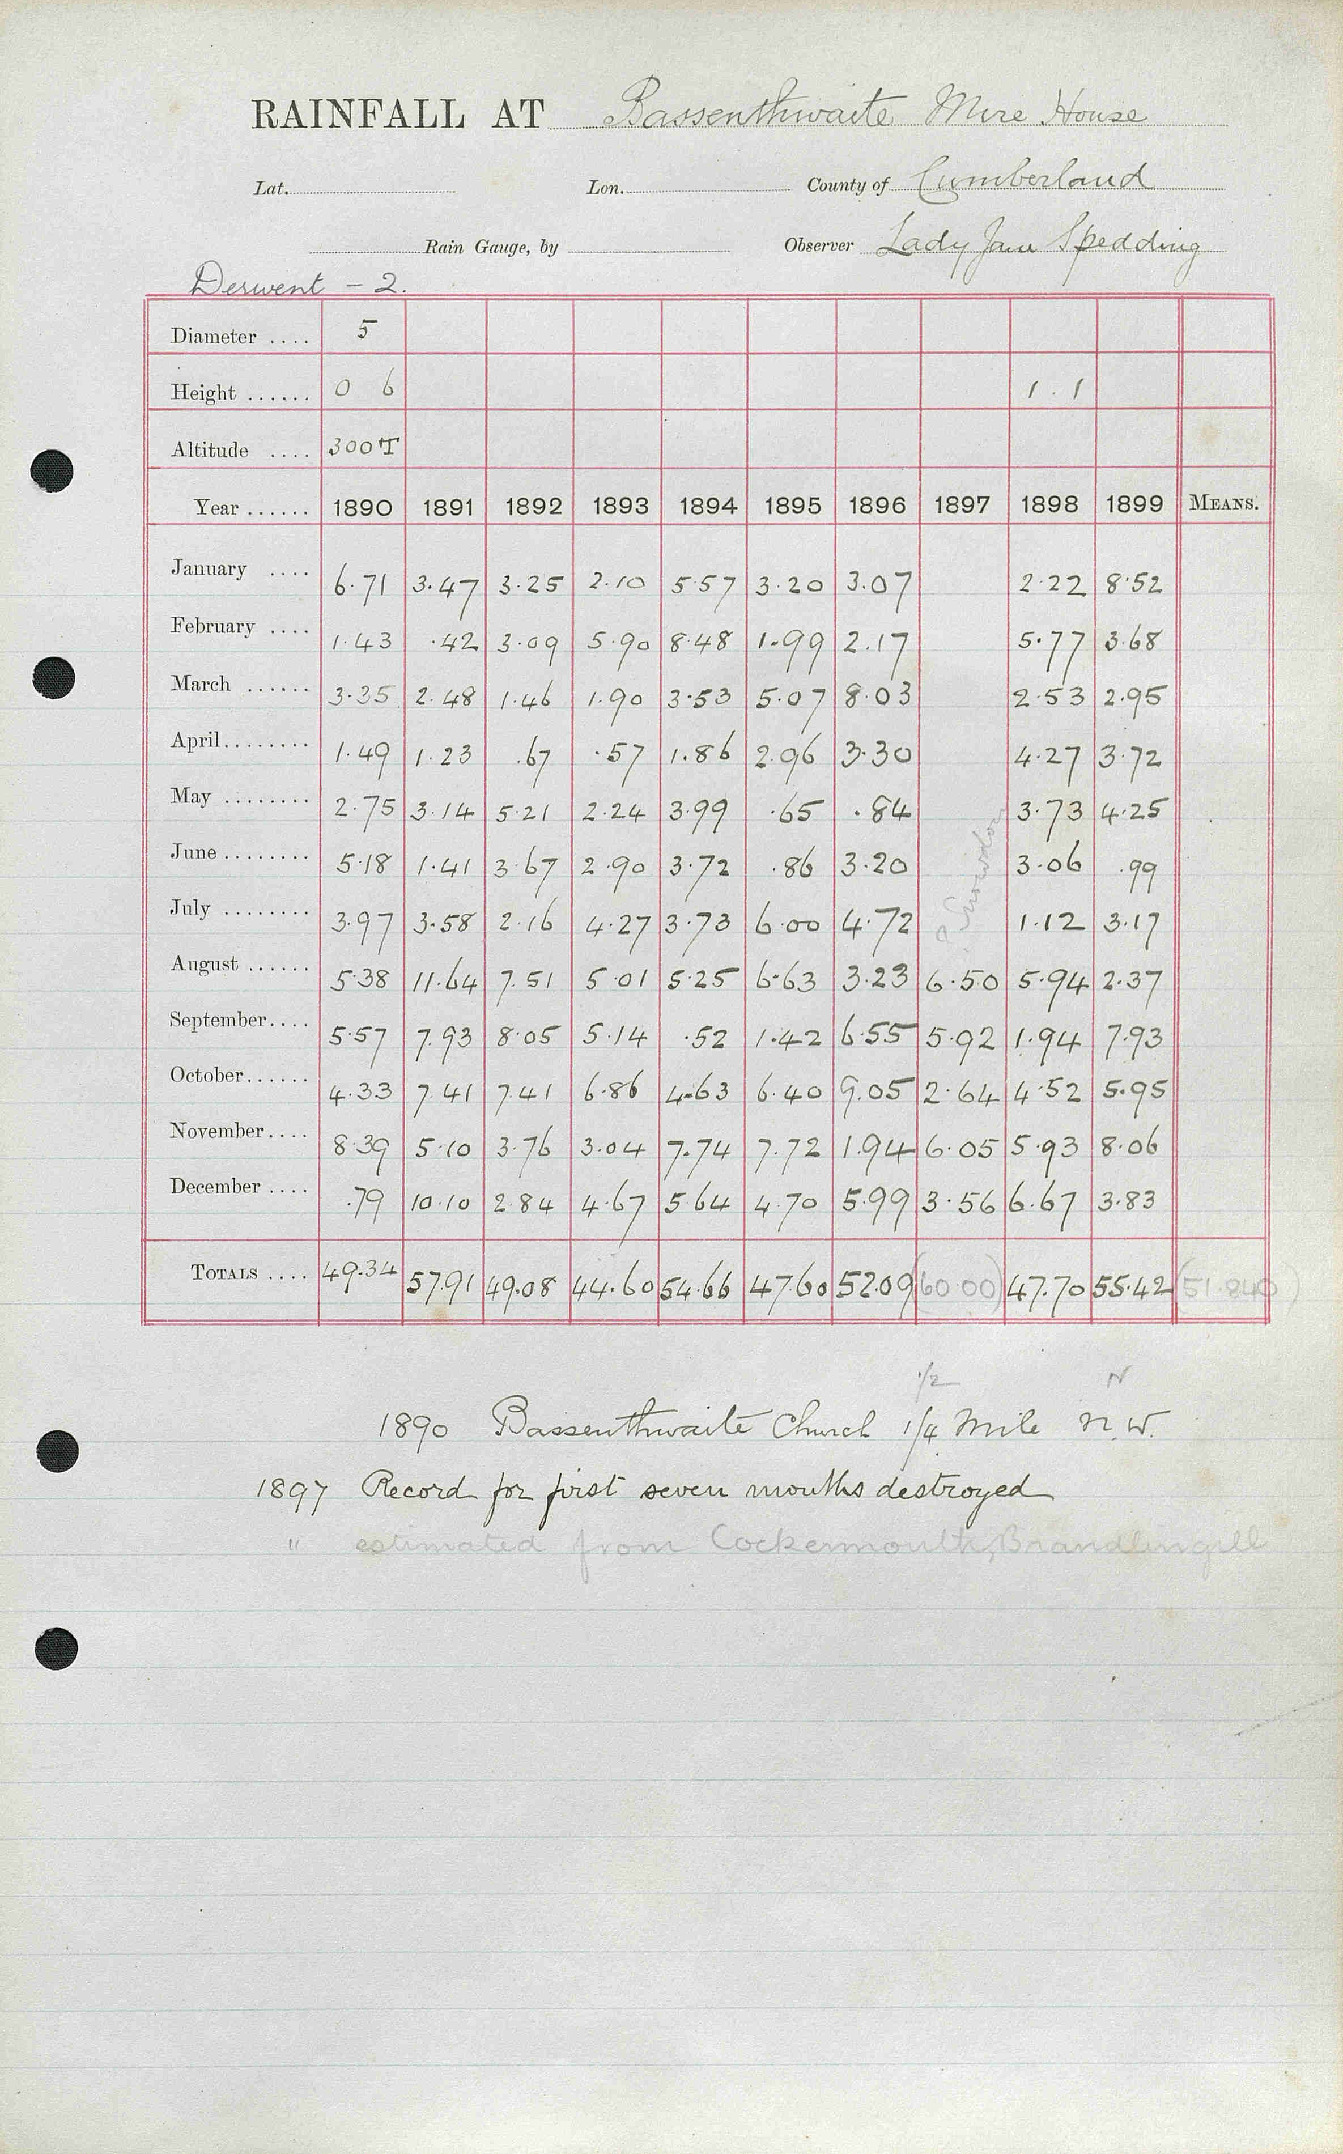 RAINFALL AT Bassenthwaite Mire House
Lat. Lon. County of Cumberland
Rain Gauge, by Observer Lady Jane Spedding
Derwent - 2.
Diameter .... 5
Height ...... 0 6 1.1
Altitude .... 300T
Year ...... 1890 1891 1892 1893 1894 1895 1896 1897 1898 1899 MEANS.
January .... 6.71 3.47 3.25 2.10 5.57 3.20 3.07 2.22 8.52
February .... 1.43 .42 3.09 5.90 8.48 1.99 2.17 5.77 3.68
March ...... 3.35 2.48 1.46 1.90 3.53 5.07 8.03 2.53 2.95
April........ 1.49 1.23 .67 .57 1.86 2.96 3.30 4.27 3.72
May ........ 2.75 3.14 5.21 2.24 3.99 .65 .84 3.73 4.25
June ........ 5.18 1.41 3.67 2.90 3.72 .86 3.20 3.06 .99
July ........ 3.97 3.58 2.16 4.27 3.73 6.00 4.72 1.12 3.17
August ...... 5.38 11.64 7.51 5.01 5.25 6.63 3.23 6.50 5.94 2.37
September.... 5.57 7.93 8.05 5.14 .52 1.42 6.55 5.92 1.94 7.93
October...... 4.33 7.41 7.41 6.86 4.63 6.40 9.05 2.64 4.52 5.95
November.... 8.39 5.10 3.76 3.04 7.74 7.72 1.94 6.05 5.93 8.06
December .... .79 10.10 2.84 4.67 5.64 4.70 5.99 3.56 6.67 3.83
TOTALS .... 49.34 57.91 49.08 44.60 54.66 47.60 52.09 (60.00) 47.70 55.42 (51.840)
1/2 N
1890 Bassenthwaite Church 1/4 Mile N.W.
1897 Record for first seven months destroyed
" estimated from Cockermouth, Brandlingill